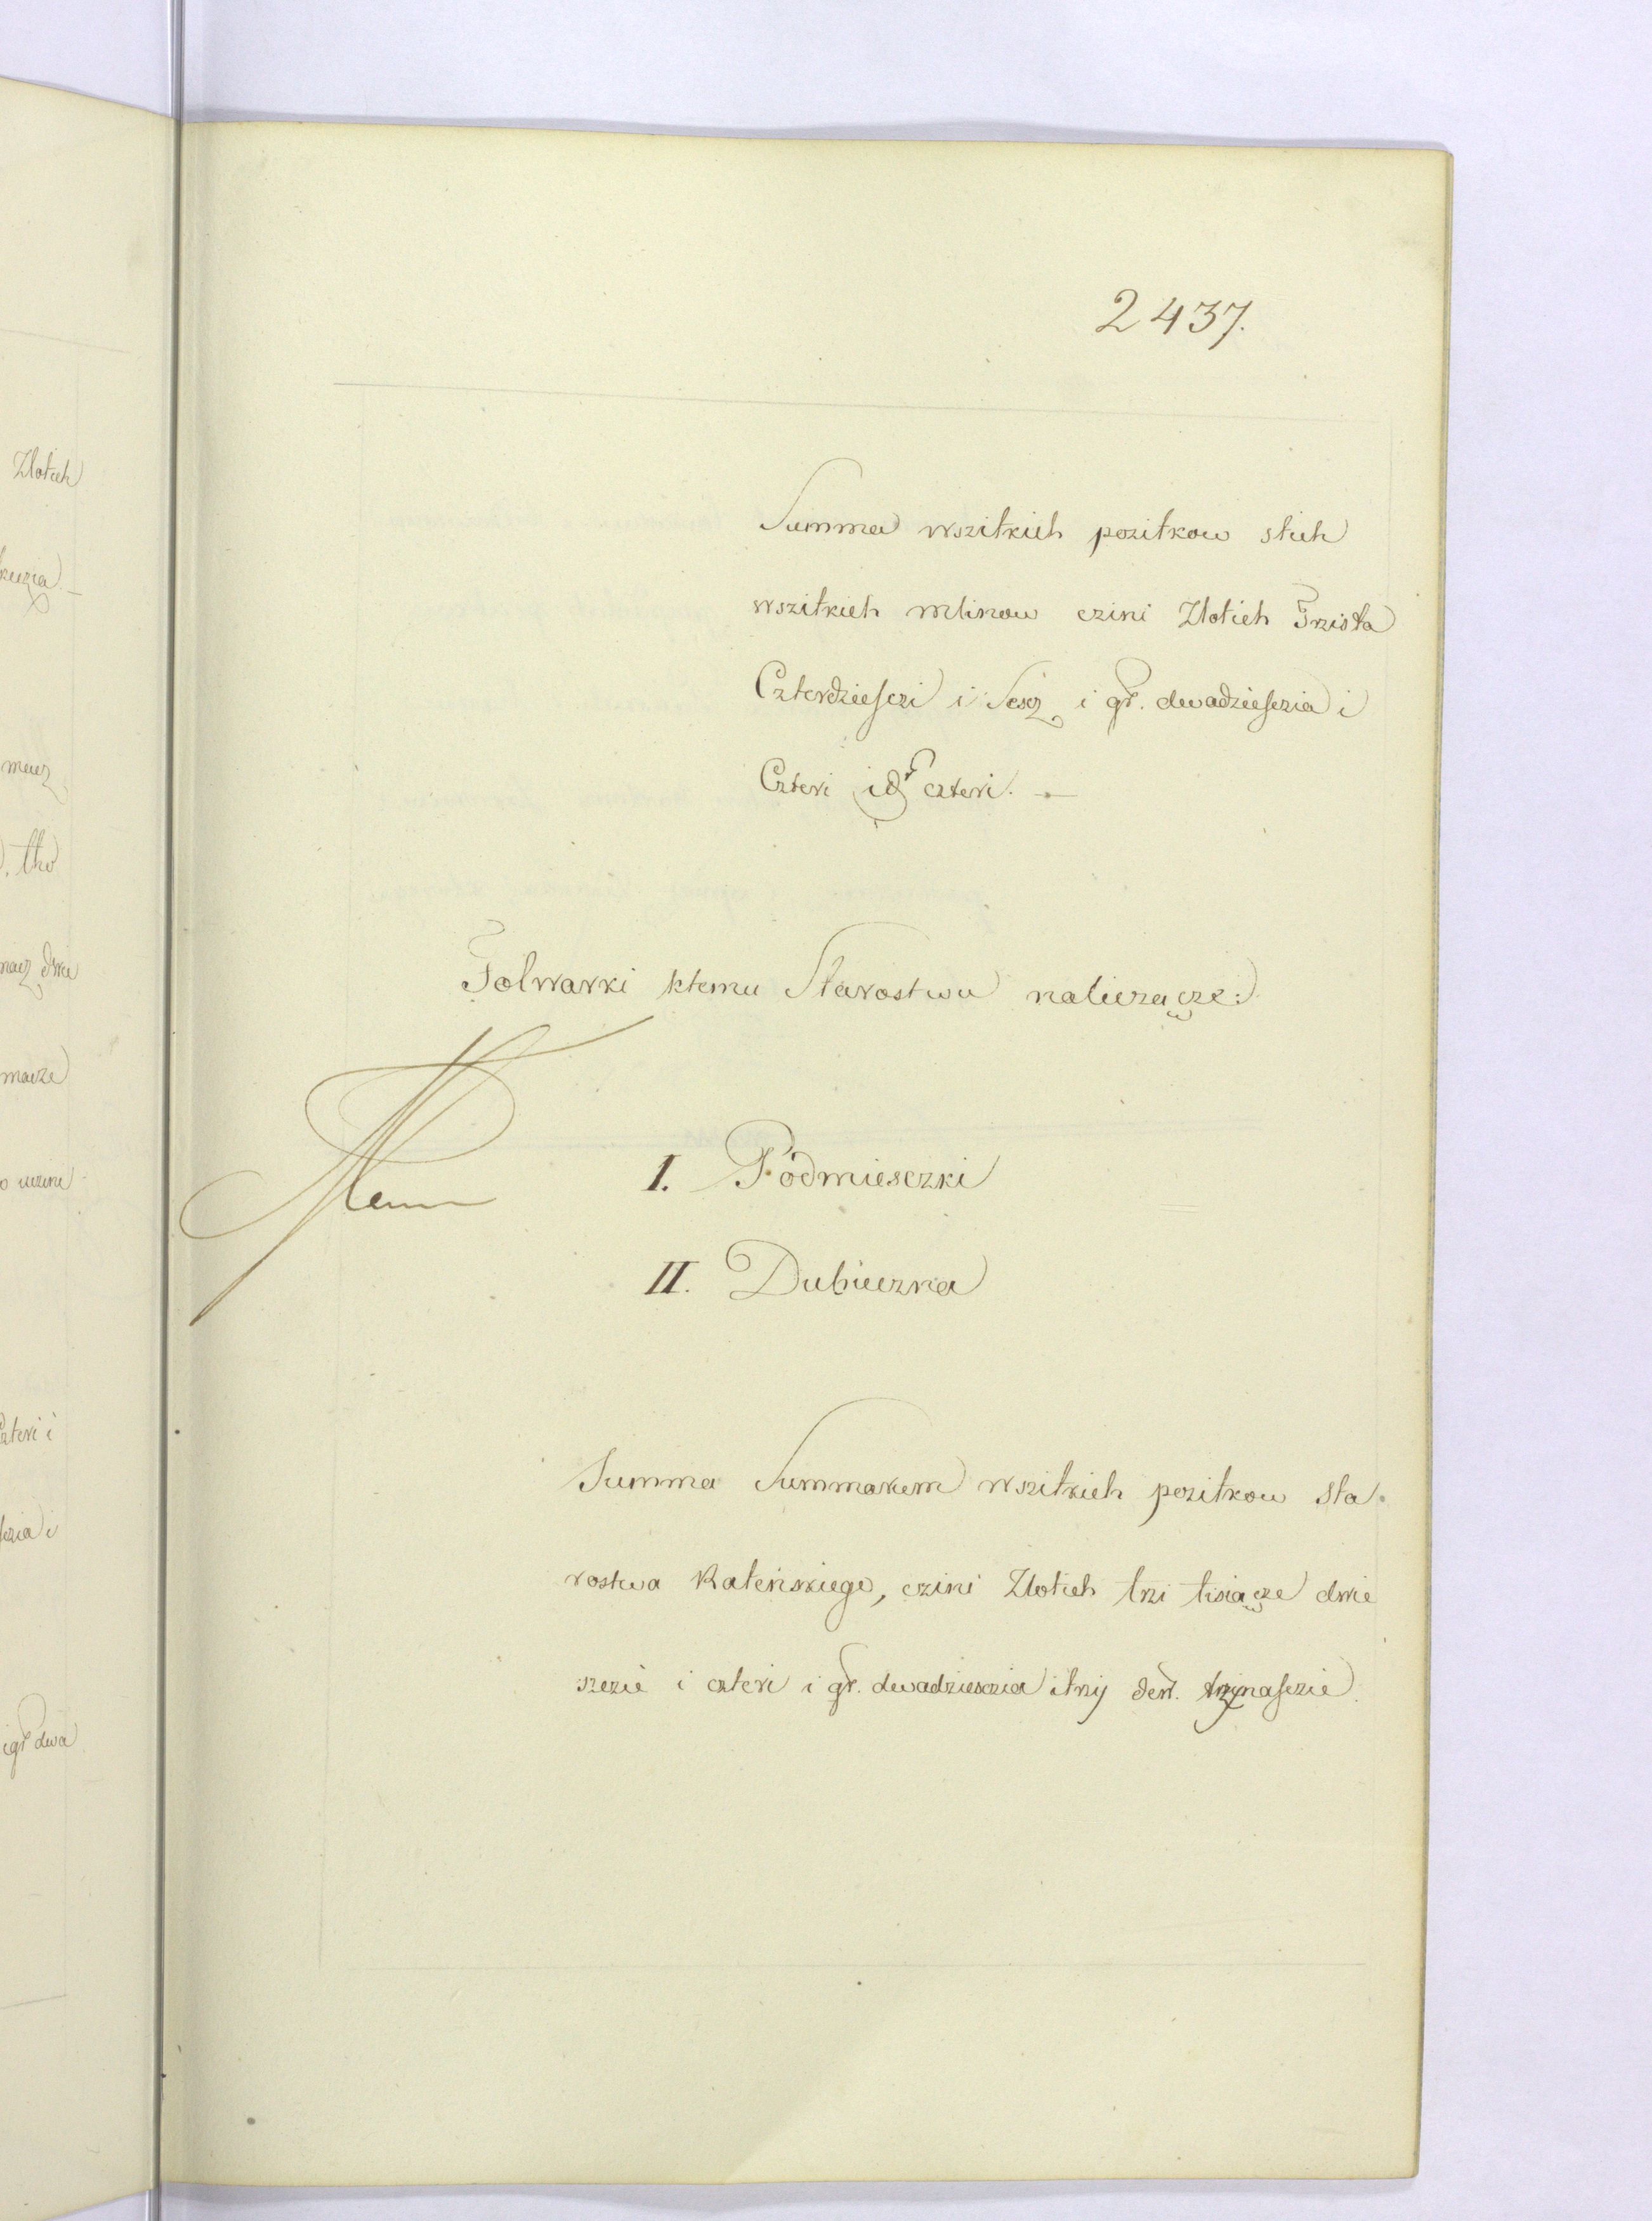 2437.
Summa wszitkich pozitkow stich
wszitkich mlinow czini Zlotich Trzista
Czterdziesczi i Sescz i gr. dwadziesczia i
Czteri i d czteri.
Folwarki ktemu Starostwu naliczacze:
I. Podmiesczki
II. Dubieczna
Summa Summarum wszitkich pozitkow sta-
rostwa Ratenskiego, czini Zlotich trzi tisiacze dwie
szczie i czteri i gr. dwadziesczia i trzy den. trzynasczie.
Zlotich
macz
tho
macz dwie
macze
czteri i
i gr dwa